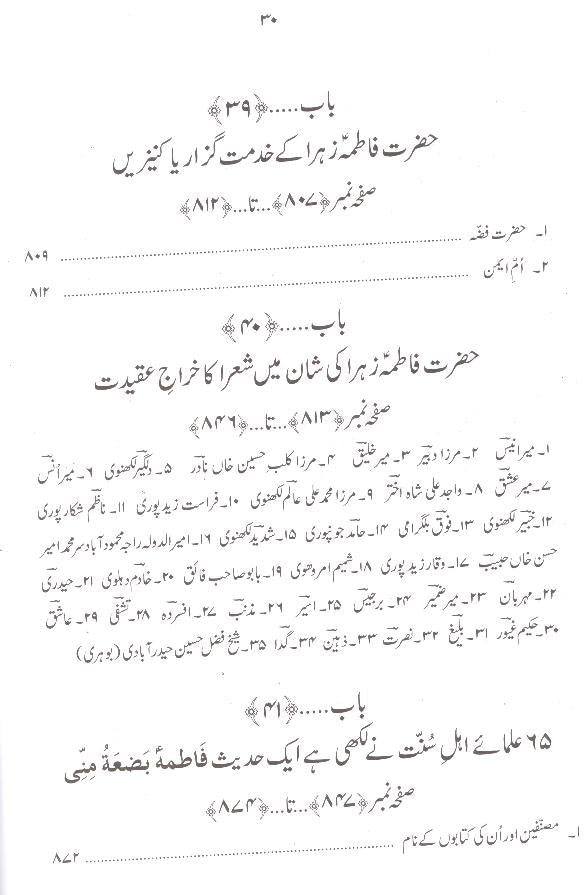 ۳۰
باب.....﴿۳۹﴾
حضرت فاطمہؑ زہرا کے خدمت گزار یا کنیزیں
صفحہ نمبر ﴿۸۰۷﴾...تا...﴿۸۱۲﴾
۱۔ حضرت فضّہ ........ ۸۰۹
۲۔ اُمِّ ایمن ........ ۸۱۲
باب.....﴿۴۰﴾
حضرت فاطمہؑ زہرا کی شان میں شعرا کا خراجِ عقیدت
صفحہ نمبر ﴿۸۱۳﴾...تا...﴿۸۴۶﴾
۱۔میر انیسؔ ۲۔ مرزا دبیرؔ ۳۔ میر خلیقؔ ۴۔ مرزا کلب حسین خاں نادرؔ ۵۔ دلگیرؔ لکھنوی ۶۔ میر اُنسؔ
۷۔میر عشقؔ ۸۔ واجد علی شاہ اخترؔ ۹۔ مرزا محمد علی عالمؔ لکھنوی ۱۰۔ فراست زید پوری ۱۱۔ ناظمؔ شکار پوری
۱۲۔خبیرؔ لکھنوی ۱۳۔فوقؔ بلگرامی ۱۴۔ حامدؔ جونپوری ۱۵۔ شدیدؔ لکھنوی ۱۶۔ امیر الدولہ راجہ محمود آباد سر محمد امیر
حسن خاں حبیبؔ ۱۷۔ وقار زید پوری ۱۸۔ شمیم امروہوی ۱۹۔ بابو صاحب فائقؔ ۲۰۔ خادمؔ دہلوی ۲۱۔ حیدریؔ
۲۲۔مہربانؔ ۲۳۔ میر ضمیرؔ ۲۴۔ برجیسؔ ۲۵۔ اسیرؔ ۲۶۔ مذنبؔ ۲۷۔ افسردہؔ ۲۸۔ تشفیؔ ۲۹۔ عاشقؔ
۳۰۔حکیم غیورؔ ۳۱۔ بلیغؔ ۳۲۔ نصرتؔ ۳۳۔ ذہینؔ ۳۴۔ گداؔ ۳۵۔ شیخ فضل حسین حیدرآبادی (بوہری)
باب.....﴿۴۱﴾
۶۵ علمائے اہلِ سُنّت نے لکھی ہے ایک حدیث فَاطمہؑ بَضعَۃُ مِنِّی
صفحہ نمبر ﴿۸۴۷﴾...تا...﴿۸۷۴﴾
۱۔ مصنّفین اور اُن کی کتابوں کے نام ........ ۸۷۲